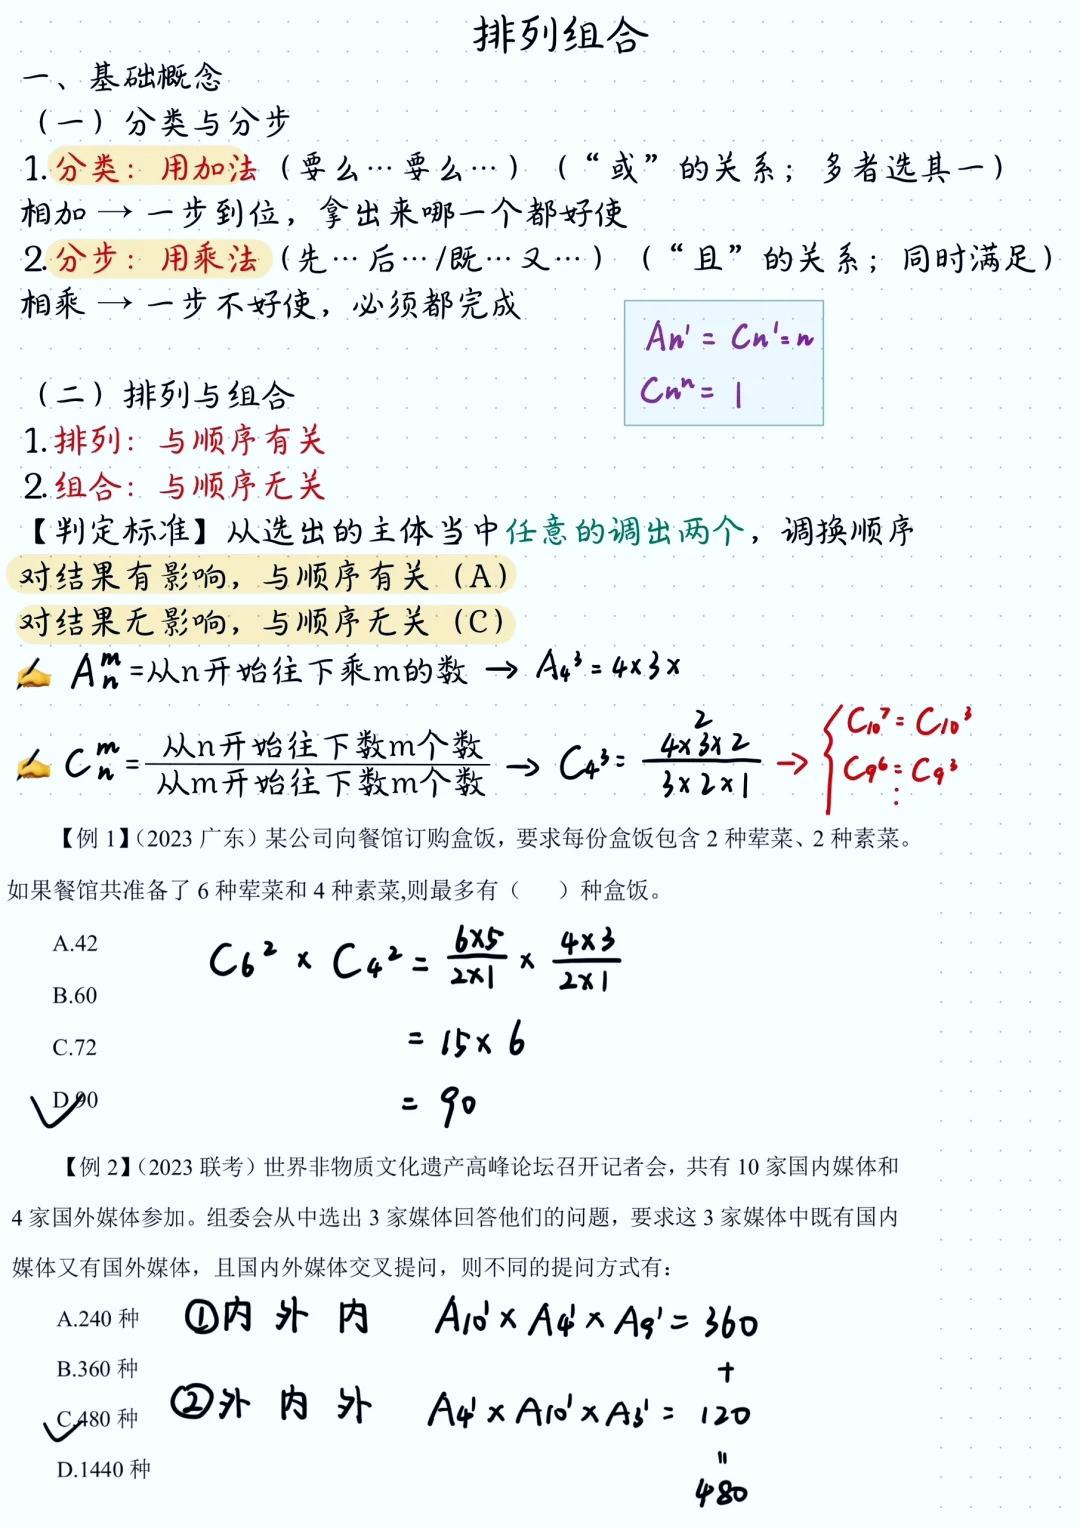 排列组合
一、基础概念
（一）分类与分步
1.分类：用加法（要么…要么…）（“或”的关系；多者选其一）
相加→一步到位，拿出来哪一个都好使
2.分步：用乘法（先…后…/既…又…）（“且”的关系；同时满足）
相乘→一步不好使，必须都完成
An¹=Cn¹=n
Cnⁿ=1
（二）排列与组合
1.排列：与顺序有关
2.组合：与顺序无关
【判定标准】从选出的主体当中任意的调出两个，调换顺序
对结果有影响，与顺序有关（A）
对结果无影响，与顺序无关（C）
✍ Aₙᵐ=从n开始往下乘m的数→A₄³=4×3×2
✍ Cₙᵐ=从n开始往下数m个数/从m开始往下数m个数→C₄³=4×3×2/3×2×1→{C₁₀⁷=C₁₀³
C₉⁶=C₉³
⋮
【例 1】（2023 广东）某公司向餐馆订购盒饭，要求每份盒饭包含 2 种荤菜、2 种素菜。
如果餐馆共准备了 6 种荤菜和 4 种素菜,则最多有（ ）种盒饭。
A.42
B.60
C.72
D.90
C₆²×C₄²=6×5/2×1×4×3/2×1
=15×6
=90
【例 2】（2023 联考）世界非物质文化遗产高峰论坛召开记者会，共有 10 家国内媒体和
4 家国外媒体参加。组委会从中选出 3 家媒体回答他们的问题，要求这 3 家媒体中既有国内
媒体又有国外媒体，且国内外媒体交叉提问，则不同的提问方式有：
A.240 种
B.360 种
C.480 种
D.1440 种
①内 外 内 A₁₀¹×A₄¹×A₉¹=360
+
②外 内 外 A₄¹×A₁₀¹×A₃¹=120
=
480